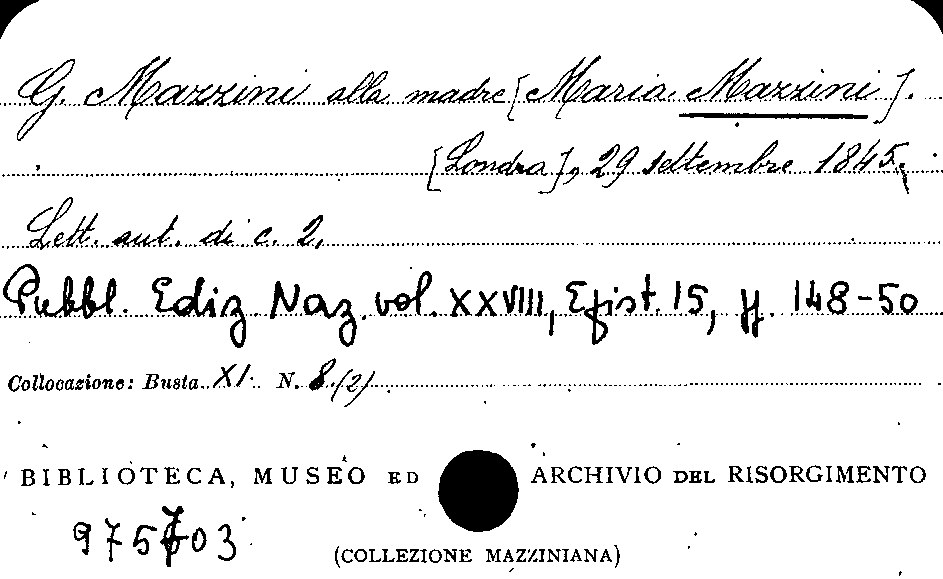 G. Mazzini alla madre [Maria Mazzini].
[Londra], 29 settembre 1845.
Lett. aut. di c. 2.
Pubbl. Ediz. Naz. vol. XXVIII, Epist. 15, pp. 148-50
Collocazione: Busta XI N. 8 (2)
BIBLIOTECA, MUSEO ED ARCHIVIO DEL RISORGIMENTO
975703
(COLLEZIONE MAZZINIANA)